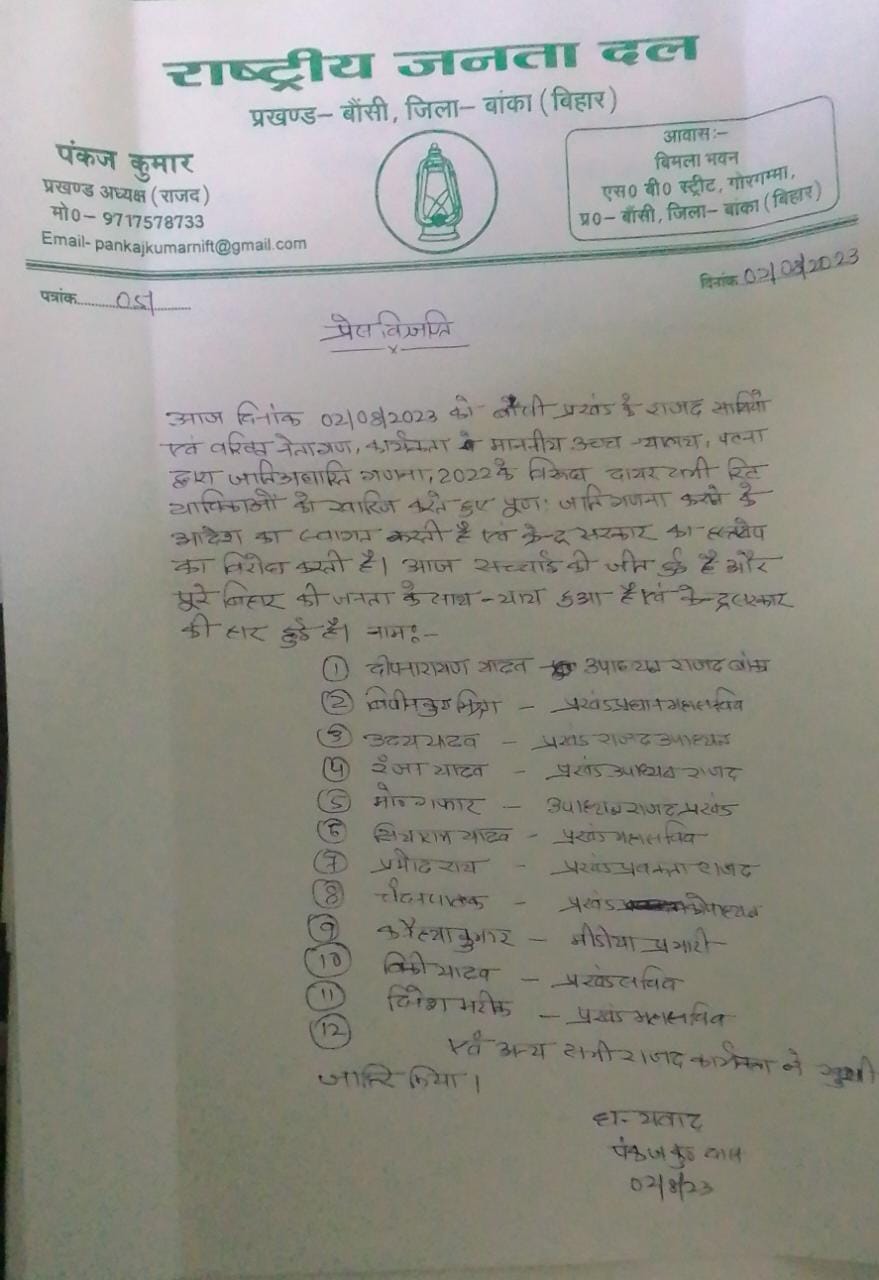 राष्ट्रीय जनता दल
प्रखण्ड- बौंसी, जिला- बांका (बिहार)
पंकज कुमार
प्रखण्ड अध्यक्ष (राजद)
मो0- 9717578733
Email- pankajkumarnift@gmail.com
आवास:-
बिमला भवन
एस0 बी0 स्ट्रीट, गोरगम्मा,
प्र0- बौंसी, जिला- बांका (बिहार)
पत्रांक......05/......
दिनांक 02/08/2023
प्रेस विज्ञप्ति
आज दिनांक 02/08/2023 को बौंसी प्रखंड के राजद साथियों
एवं वरिष्ठ नेतागण, कार्यकर्ता माननीय उच्च न्यायालय, पटना
द्वारा जाति आधारित गणना, 2022 के विरूद्ध दायर सभी रिट
याचिकाओं को खारिज करते हुए पुणः जाति गणना करने के
आदेश का स्वागत करती है एवं केन्द्र सरकार का हस्तक्षेप
का विरोध करती है। आज सच्चाई की जीत हुई है और
पूरे बिहार की जनता के साथ न्याय हुआ है एवं केन्द्र सरकार
की हार हुई है। नाम:-
1 दीपनारायण यादव - उपाध्यक्ष राजद बांका
2 बिपीन कु0 मिश्रा - प्रखंड प्रधान महासचिव
3 उदय यादव - प्रखंड राजद उपाध्यक्ष
4 रंजा यादव - प्रखंड उपाध्यक्ष राजद
5 मो0 गफार - उपाध्यक्ष राजद प्रखंड
6 सियाराम यादव - प्रखंड महासचिव
7 प्रमोद राय - प्रखंड प्रवक्ता राजद
8 - प्रखंड कोषाध्यक्ष
9 कुमार - मीडीया प्रभारी
10 विक्की यादव - प्रखंड सचिव
11 दिनेश मरीक - प्रखंड महासचिव
12 एवं अन्य सभी राजद कार्यकर्ता ने खुशी
जाहिर किया।
धन्यवाद
पंकज कु0
02/8/23